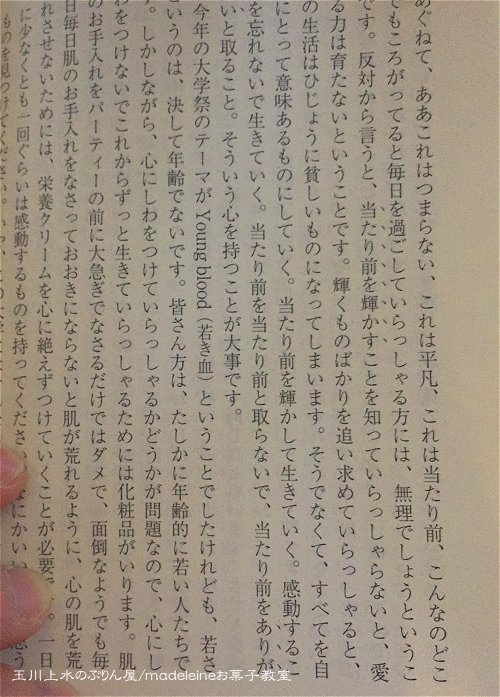 あぐねて、ああこれはつまらない、これは平凡、これは当たり前、こんなのどこ
でもころがってると毎日を過ごしていらっしゃる方には、無理でしょうというこ
です。反対から言うと、当たり前を輝かすことを知っていらっしゃらないと、愛
る力は育たないということです。輝くものばかりを追い求めていらっしゃると、
の生活はひじょうに貧しいものになってしまいます。そうでなくて、すべてを自
にとって意味あるものにしていく。当たり前を輝かして生きていく。感動するこ
を忘れないで生きていく。当たり前を当たり前と取らないで、当たり前をありが
いと取ること。そういう心を持つことが大事です。
今年の大学祭のテーマが Young blood（若き血）ということでしたけれども、若さ
というのは、決して年齢でないです。皆さん方は、たしかに年齢的に若い人たちで
す。しかしながら、心にしわをつけていらっしゃるかどうかが問題なので、心にし
わをつけないでこれからずっと生きていらっしゃるためには化粧品がいります。肌
のお手入れをパーティーの前に大急ぎでなさるだけではダメで、面倒なようでも毎
日毎日肌のお手入れをなさっておおきにならないと肌が荒れるように、心の肌を荒
れさせないためには、栄養クリームを心に絶えずつけていくことが必要 一日
に少なくとも一回ぐらいは感動するものを持ってください なにかいい 思う
ものを見つけてください。
玉川上水のぷりん屋/madeleineお菓子教室